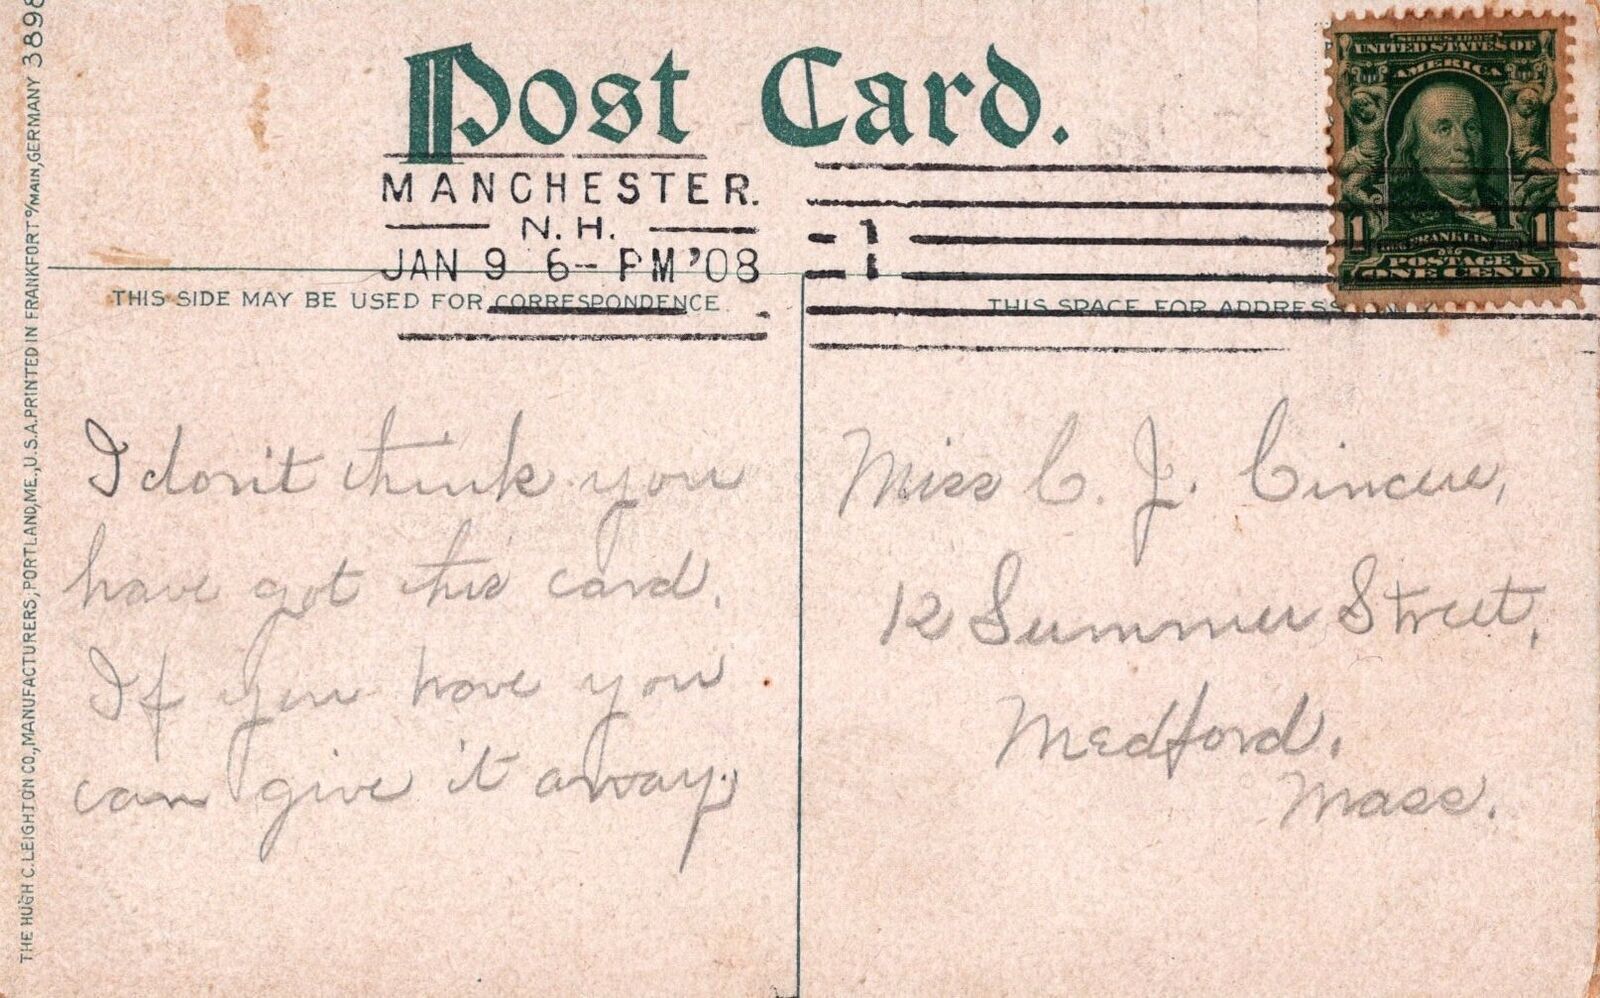 Post Card.
MANCHESTER.
N.H.
JAN 9 6-PM '08
1
SERIES 1902
UNITED STATES OF
AMERICA
1 FRANKLIN 1
POSTAGE
ONE CENT
THIS SIDE MAY BE USED FOR CORRESPONDENCE.
THIS SPACE FOR ADDRESS ONLY
I don't think you
have got this card.
If you have you
can give it away.
Miss C. J.
12 Summer Street,
Medford,
Mass.
THE HUGH C. LEIGHTON CO., MANUFACTURERS, PORTLAND, ME., U.S.A. PRINTED IN FRANKFORT o/MAIN, GERMANY 3898